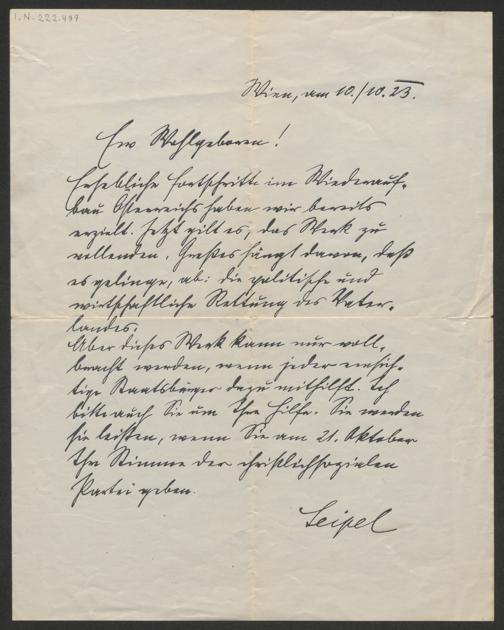 I.N. 222.499
Wien, am 10./10. 23.
Euer Wohlgeboren!
Erhebliche Fortschritte im Wiederauf-
bau Österreichs haben wir bereits
erzielt. Jetzt gilt es, das Werk zu
vollenden. Großes hängt davon, daß
es gelinge, ab: die politische und
wirtschaftliche Rettung des Vater-
landes.
Aber dieses Werk kann nur voll-
bracht werden, wenn jeder einsich-
tige Staatsbürger dazu mithilft. Ich
bitte auch Sie um Ihre Hilfe. Sie werden
sie leisten, wenn Sie am 21. Oktober
Ihre Stimme der christlichsozialen
Partei geben.
Seipel